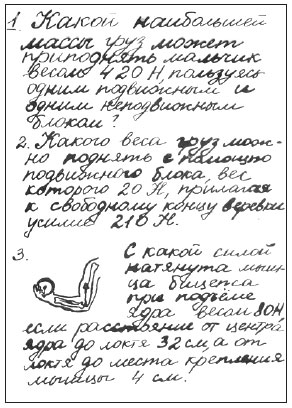 1. Какой наибольшей
массы груз может
приподнять мальчик
весом 420 Н, пользуясь
одним подвижным и
одним неподвижным
блоком?
2. Какого веса груз мож-
но поднять с помощью
подвижного блока, вес
которого 20 Н, прилагая
к свободному концу веревки
усилие 210 Н.
3. С какой силой
натянута мышца
ца бицепса
при подъёме
ядра весом 80Н,
если расстояние от центра
ядра до локтя 32 см, а от
локтя до места крепления
мышцы 4 см.